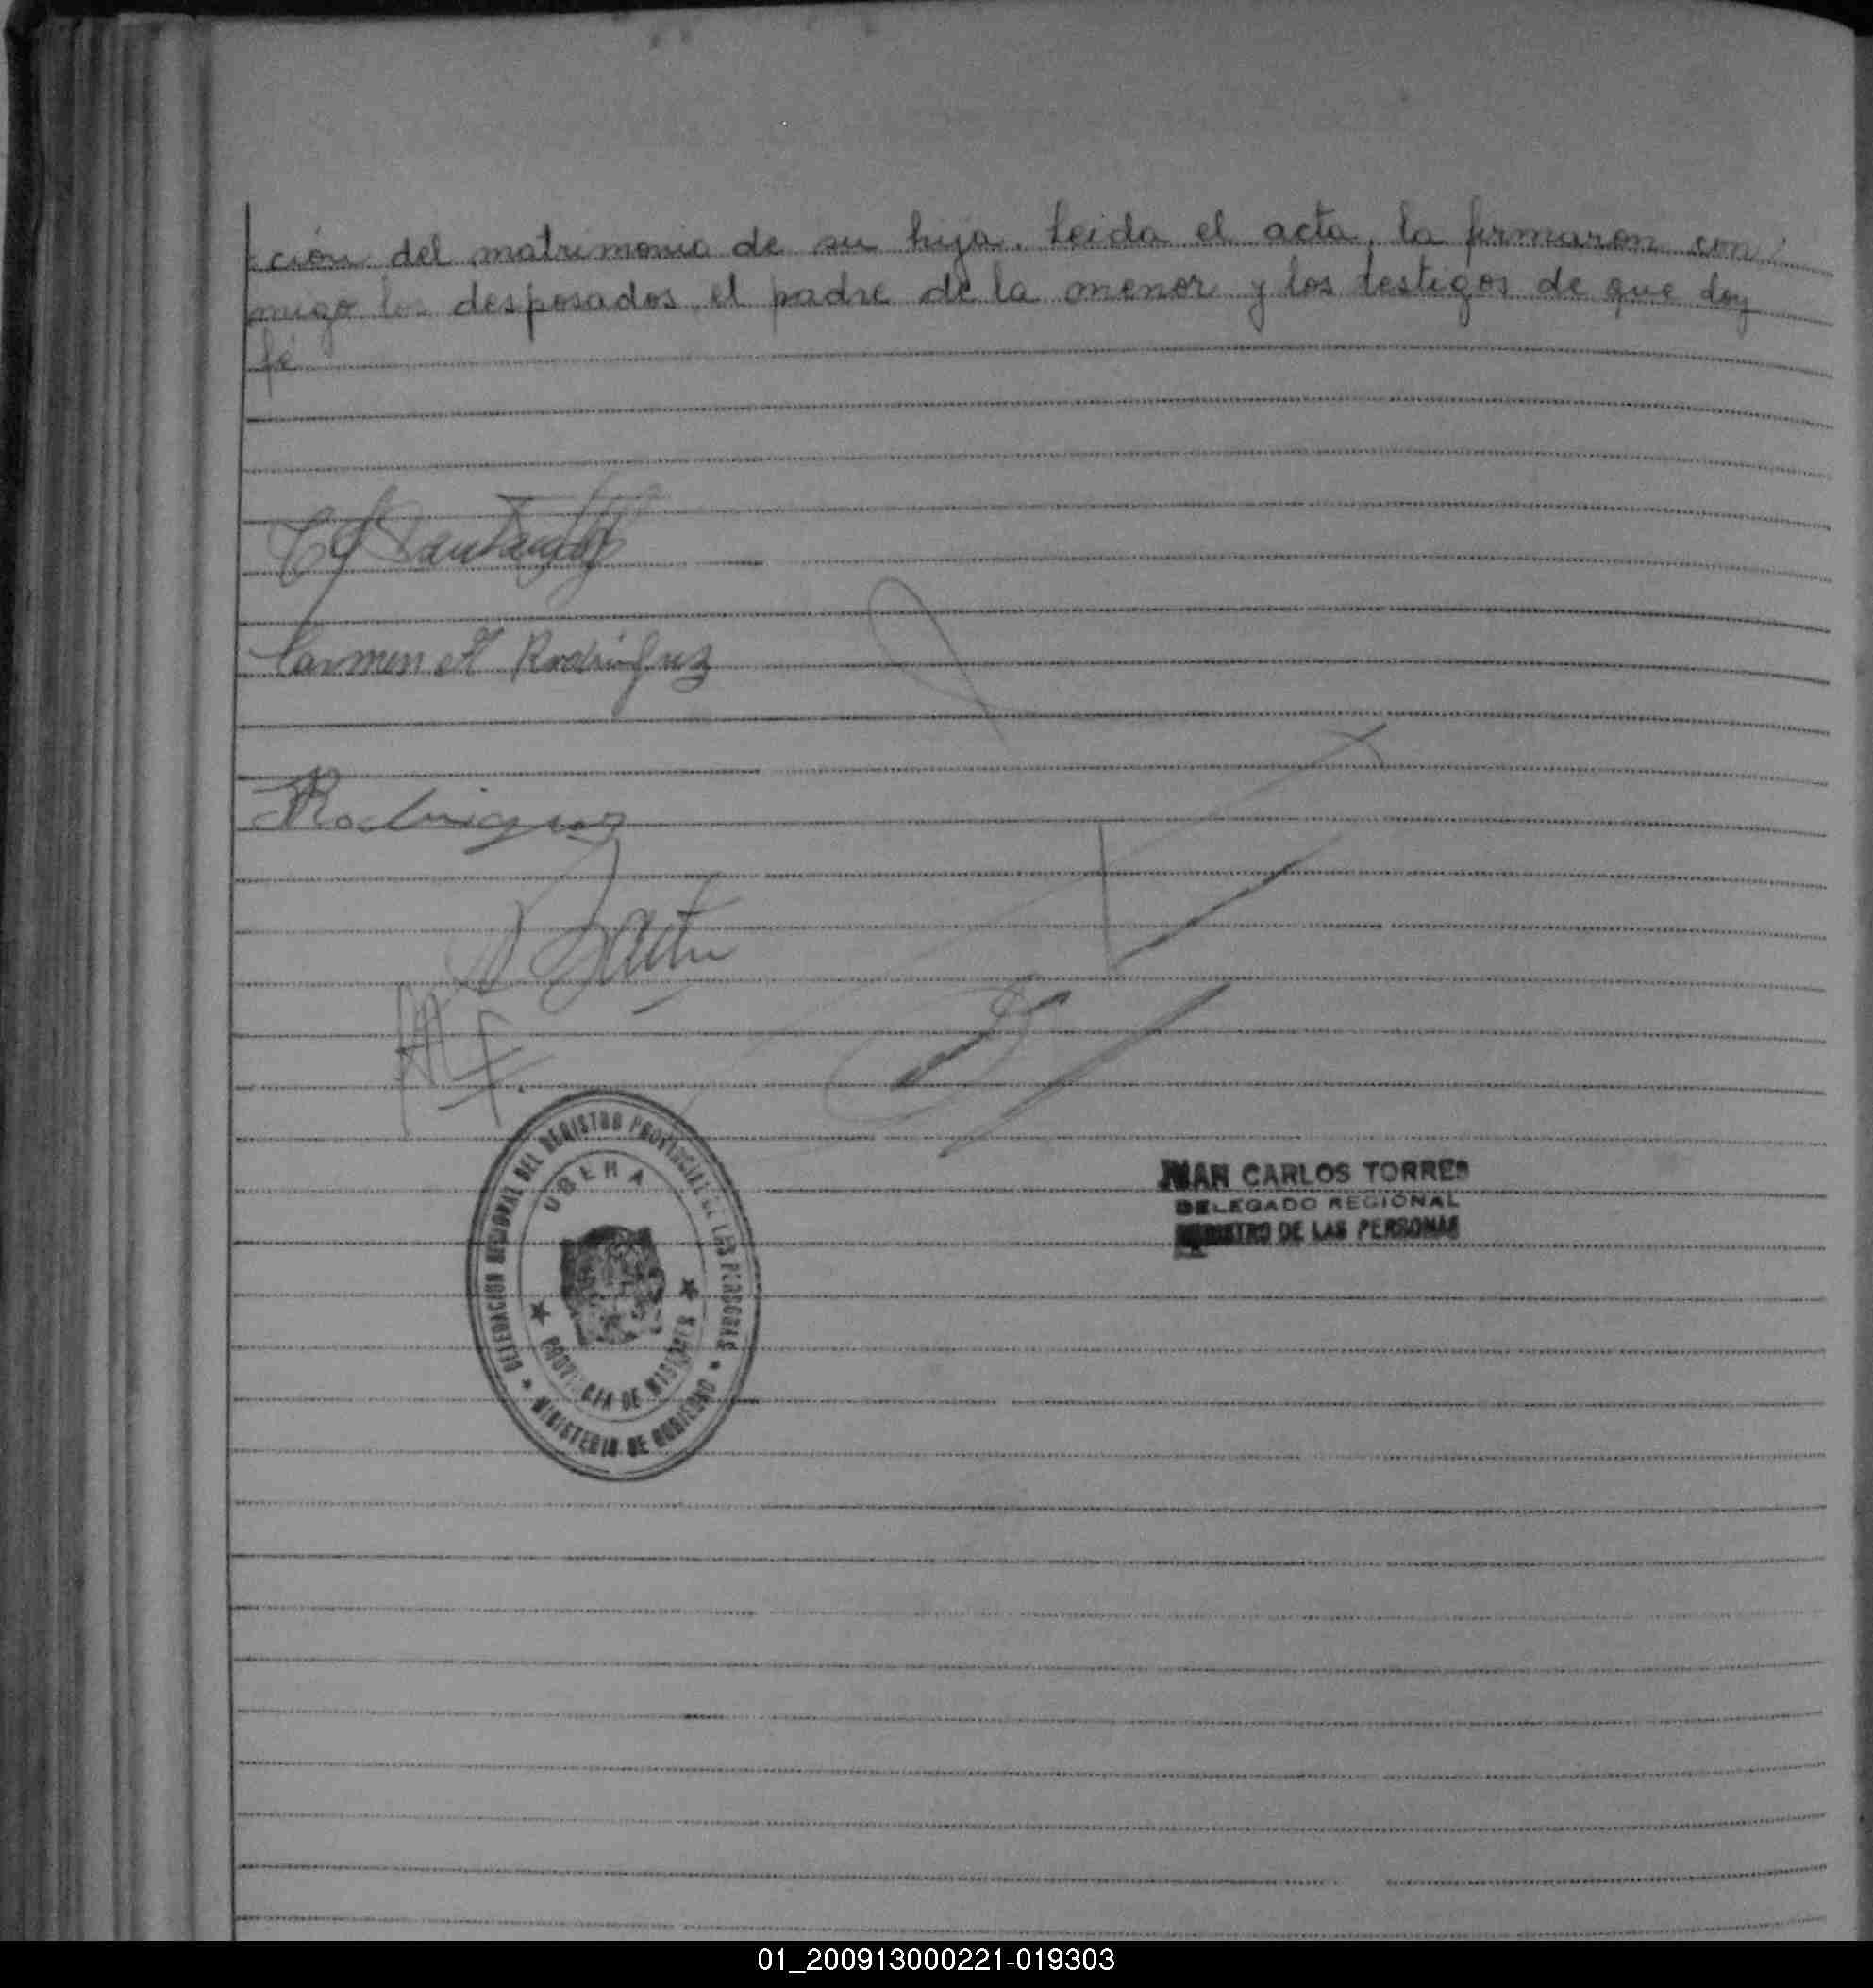 ción del matrimonio de su hija. Leida el acta, la firmaron con
migo los desposados, el padre de la menor y los testigos de que doy
fé
Carmen A Rodríguez
Rodriguez
DELEGACION REGIONAL DEL REGISTRO PROVINCIAL DE LAS PERSONAS
OBERA
PROVINCIA DE MISIONES
MINISTERIO DE GOBIERNO
JUAN CARLOS TORRES
DELEGADO REGIONAL
REGISTRO DE LAS PERSONAS
01_200913000221-019303